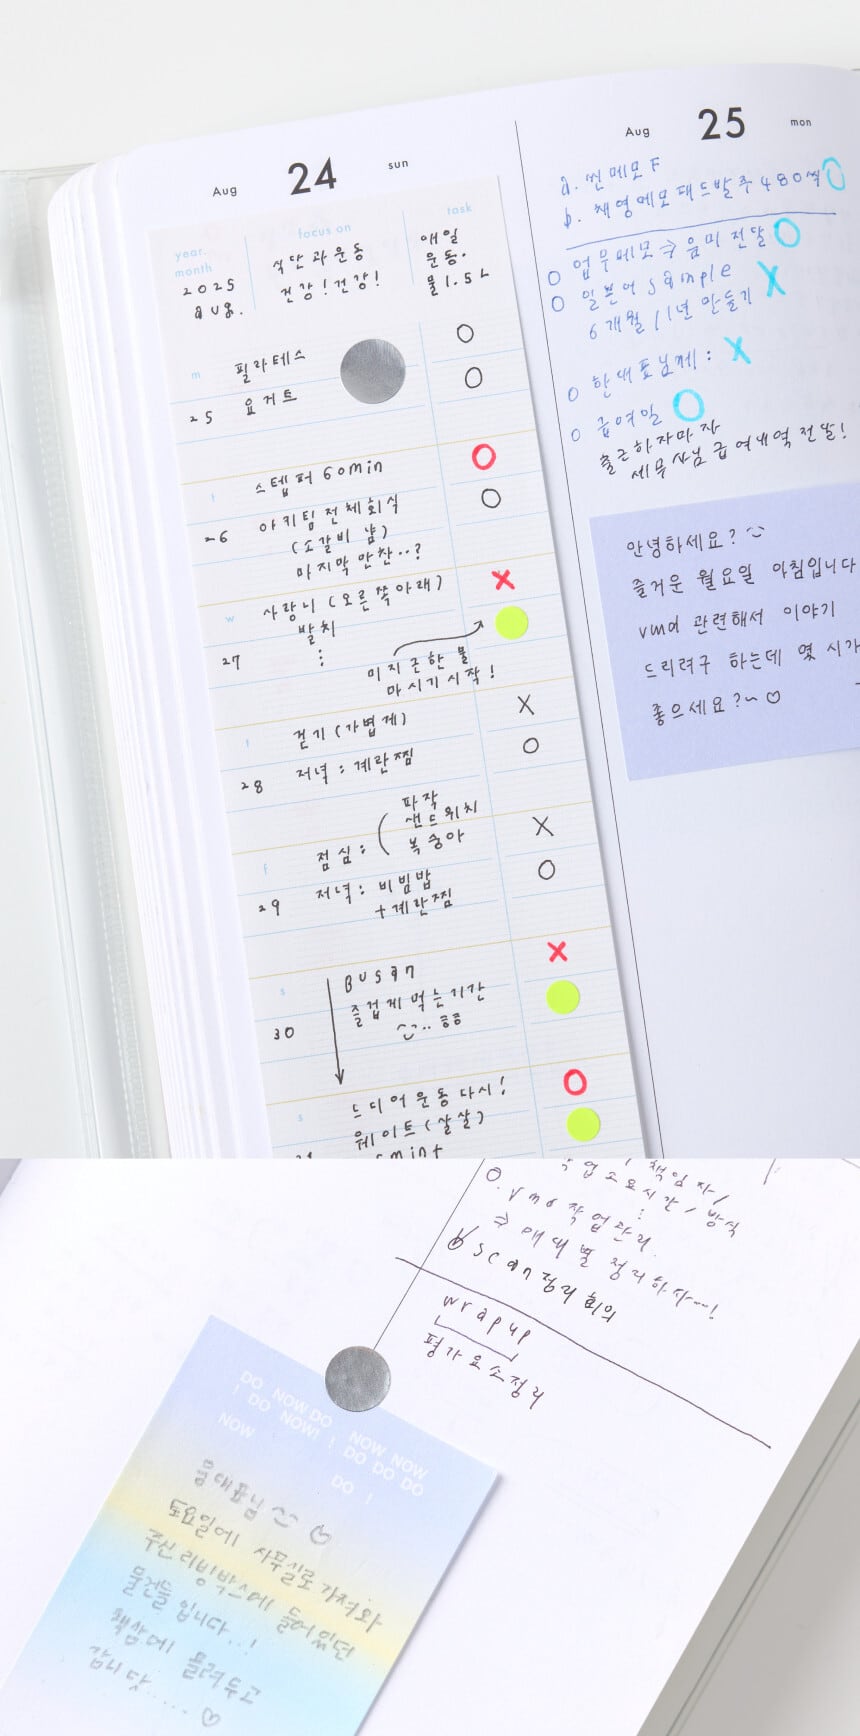 Aug 24 sun
year.
month
2025
aug.
focus on
식단과운동
건강!건강!
task
매일
운동.
물1.5L
m
25
필라테스
요거트
O
O
t
26
스텝퍼 60min
아키팀전체회식
(소갈비 냠)
마지막 만찬..?
O
O
w
27
사랑니 (오른쪽아래)
발치
⋮
미지근한 물
마시기시작!
X
t
28
걷기 (가볍게)
저녁 : 계란찜
X
O
f
29
점심 : ( 파작
샌드위치
복숭아
저녁 : 비빔밥
+계란찜
X
O
s
30
Busan
즐겁게 먹는기간
X
s
드디어운동다시!
웨이트(살살)
O
Aug 25 mon
a. 씬메모 F
b. 채영메모패드발주480씩 O
O 업무메모 ⇒ 음미 전달 O
O 일본어 sample
6개월/1년 만들기 X
O 한대표님께 : X
O 급여일 O
출근하자마자
세무사님 급여내역 전달!
안녕하세요?
즐거운 월요일 아침입니다
vmd 관련해서 이야기
드리려구 하는데 몇 시가
좋으세요?~ ♡
책임자/
작업소요시간/방식
⋮
O. vmd 작업관리
⇒ 매대별 정리하자~!
b scan정리 회의
wrapup
평가요소정리
DO NOW DO NOW NOW
! DO NOW! ! DO DO DO
NOW DO !
음대표님 ♡
토요일에 사무실로 가져와
주신 리빙박스에 들어있던
물건들 입니다..!
책상에 올려두고
갑니닷..... ♡